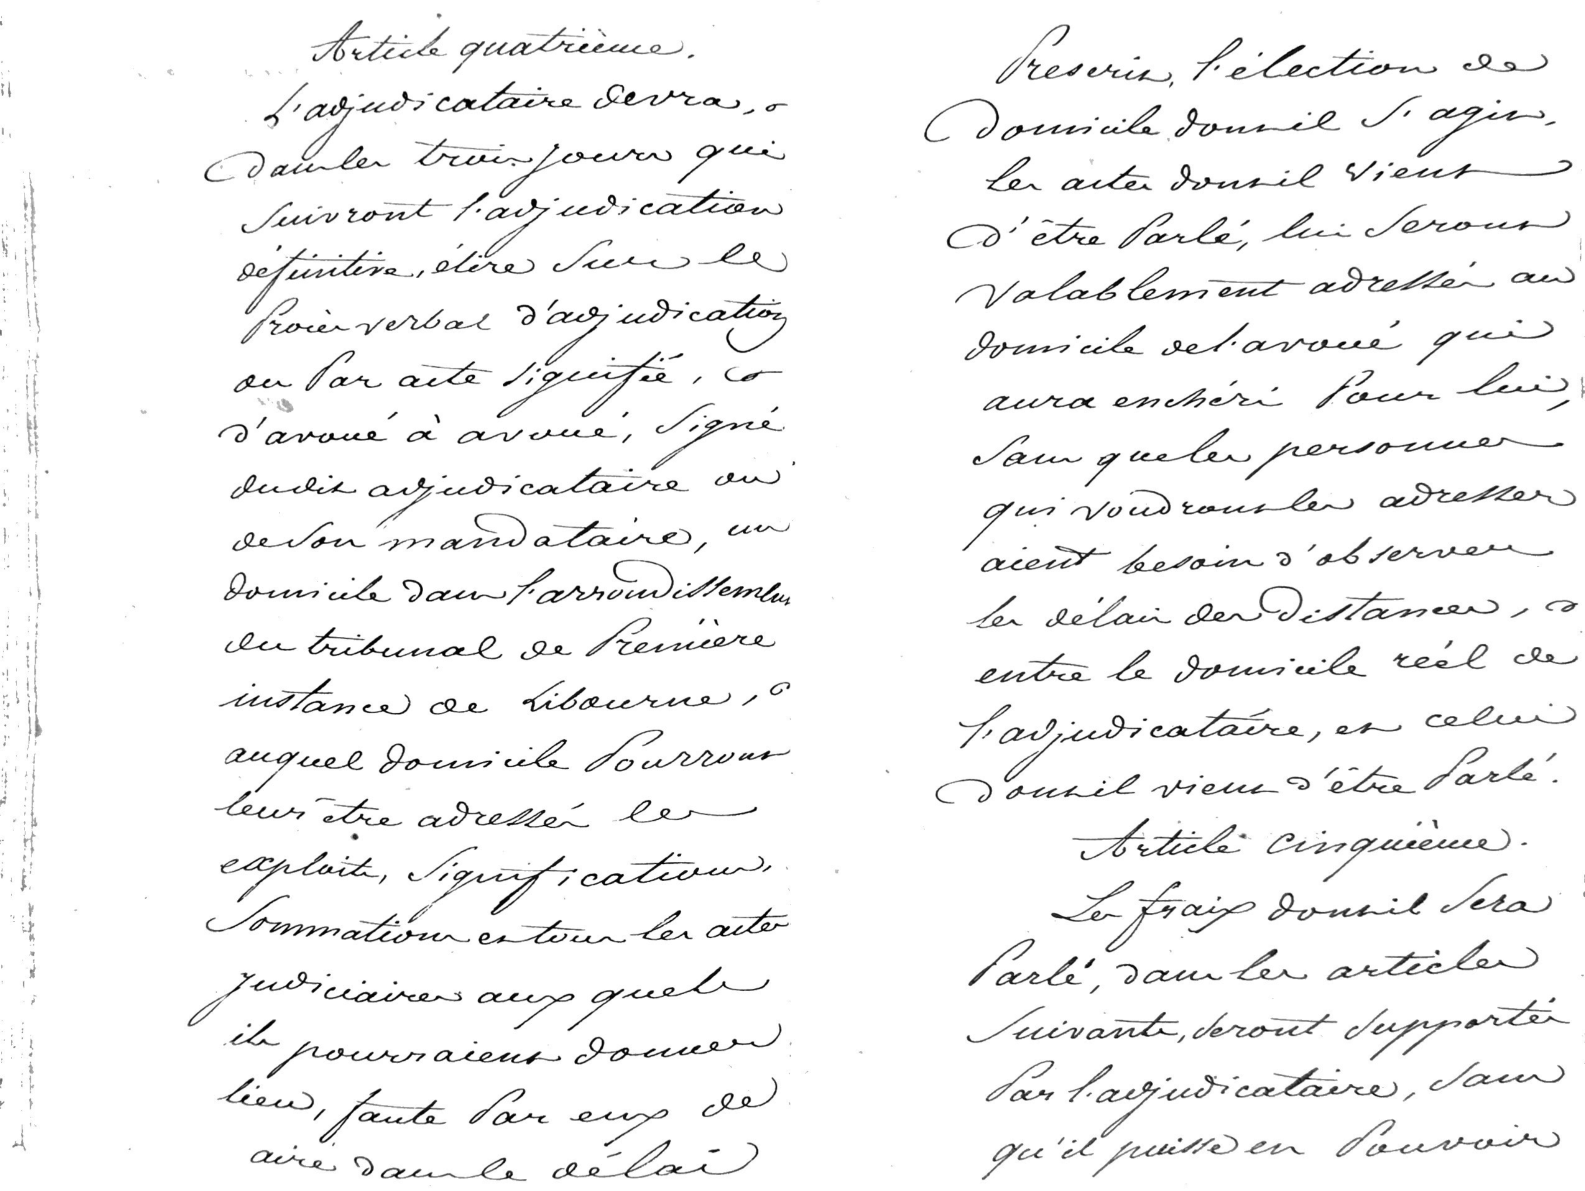 Article quatrième.
L'adjudicataire devra,
dans les trois jours qui
suivront l'adjudication
définitive, élire sur le
Procès verbal d'adjudication
ou par acte signifié,
d'avoué à avoué, signé
dudit adjudicataire ou
de son mandataire, un
domicile dans l'arrondissement
du tribunal de Première
instance de Libourne,
auquel domicile Pourront
leur être adressés les
exploits, significations,
Sommations et tous les actes
judiciaires aux quels
ils pourraient donner
lieu, faute Par eux de
aire dans le délai
Prescrit, l'élection de
domicile dont il s'agit,
les actes dont il vient
d'être Parlé, lui seront
valablement adressés au
domicile de l'avoué qui
aura enchéri Pour lui,
sans que les personnes
qui voudront les adresser
aient besoin d'observer
les délais des distances,
entre le domicile réél de
l'adjudicataire, et celui
dont il vient d'être Parlé.
Article cinquième.
Les fraix dont il sera
Parlé, dans les articles
suivants, seront supportés
Par l'adjudicataire, sans
qu'il puisse en Pouvoir